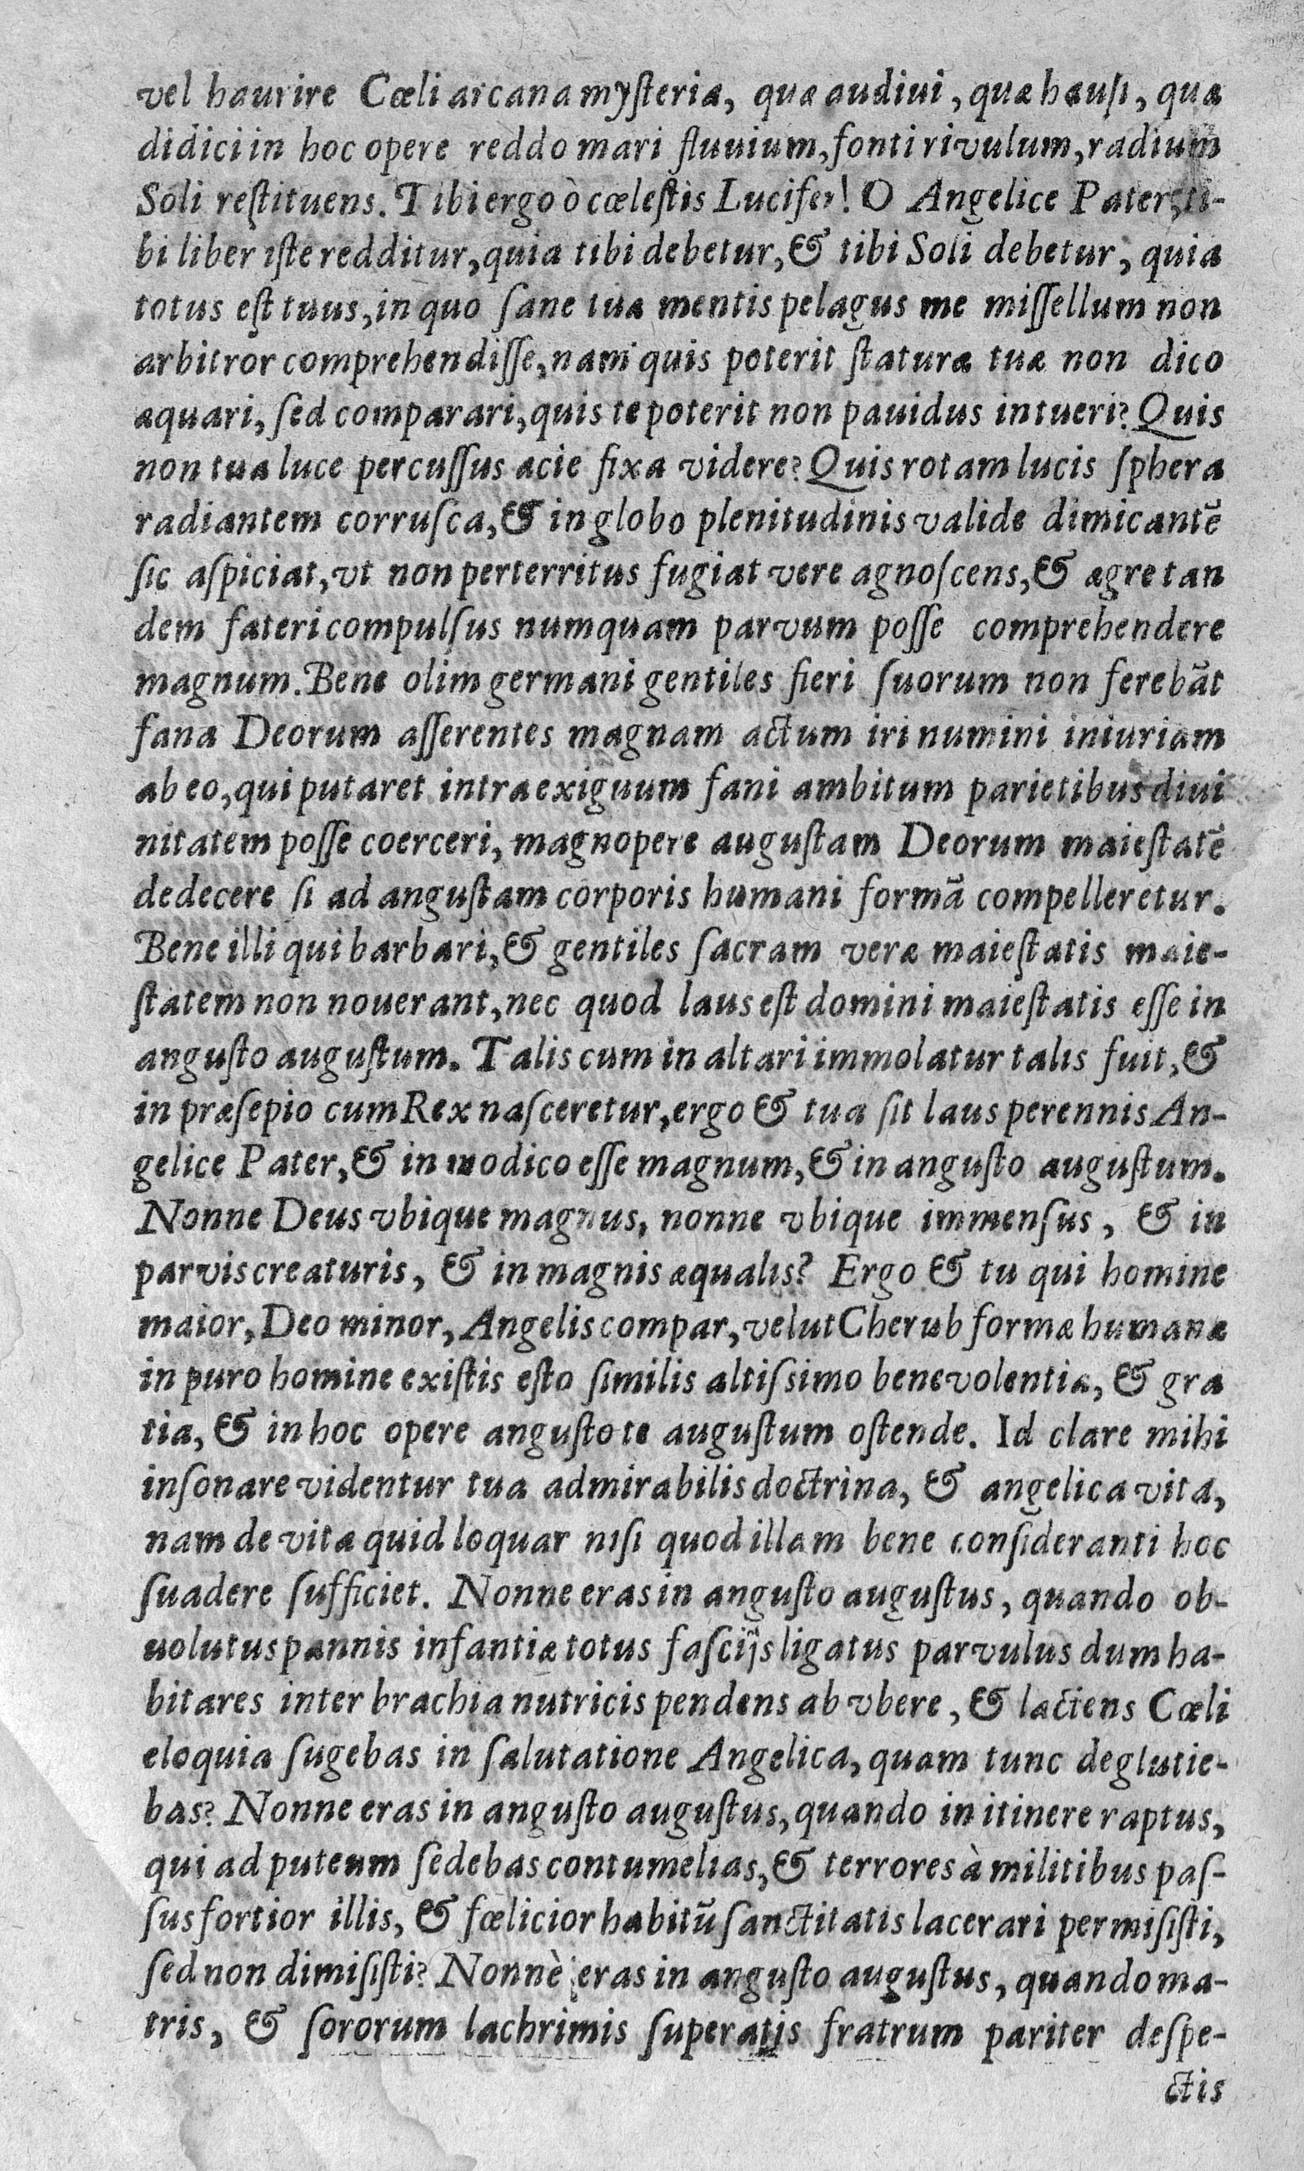 vel haurire Cœli arcana mysteria, quæ audiui, quæ hausi, quæ
didici in hoc opere reddo mari fluuium, fonti rivulum, radium
Soli restituens. Tibi ergo ò cœlestis Lucifer! O Angelice Pater, ti-
bi liber iste redditur, quia tibi debetur, & tibi Soli debetur, quia
totus est tuus, in quo sane tuæ mentis pelagus me missellum non
arbitror comprehendisse, nam quis poterit staturæ tuæ non dico
æquari, sed comparari, quis te poterit non pauidus intueri? Quis
non tua luce percussus acie fixa videre? Quis rotam lucis sphera
radiantem corrusca, & in globo plenitudinis valide dimicantē
sic aspiciat, vt non perterritus fugiat vere agnoscens, & ægre tan
dem fateri compulsus numquam parvum posse comprehendere
magnum. Bene olim germani gentiles fieri suorum non ferebāt
fana Deorum asserentes magnam actum iri numini iniuriam
ab eo, qui putaret intra exiguum fani ambitum parietibus diui
nitatem posse coerceri, magnopere augustam Deorum maiestatē
dedecere si ad angustam corporis humani formā compelleretur.
Bene illi qui barbari, & gentiles sacram veræ maiestatis maie-
statem non nouerant, nec quod laus est domini maiestatis esse in
angusto augustum. Talis cum in altari immolatur talis fuit, &
in præsepio cum Rex nasceretur, ergo & tua sit laus perennis An-
gelice Pater, & in modico esse magnum, & in angusto augustum.
Nonne Deus vbique magnus, nonne vbique immensus, & in
parvis creaturis, & in magnis æqualis? Ergo & tu qui homine
maior, Deo minor, Angelis compar, velut Cherub formæ humanæ
in puro homine existis esto similis altissimo benevolentia, & gra
tia, & in hoc opere angusto te augustum ostende. Id clare mihi
insonare videntur tua admirabilis doctrina, & angelica vita,
nam de vita quid loquar nisi quod illam bene consideranti hoc
suadere sufficiet. Nonne eras in angusto augustus, quando ob-
uolutus pannis infantiæ totus fascijs ligatus parvulus dum ha-
bitares inter brachia nutricis pendens ab vbere, & lactens Cœli
eloquia sugebas in salutatione Angelica, quam tunc deglutie-
bas? Nonne eras in angusto augustus, quando in itinere raptus,
qui ad puteum sedebas contumelias, & terrores à militibus pas-
sus fortior illis, & fœlicior habitū sanctitatis lacerari permisisti,
sed non dimisisti? Nonnè eras in angusto augustus, quando ma-
tris, & sororum lachrimis superatis fratrum pariter despe-
ctis